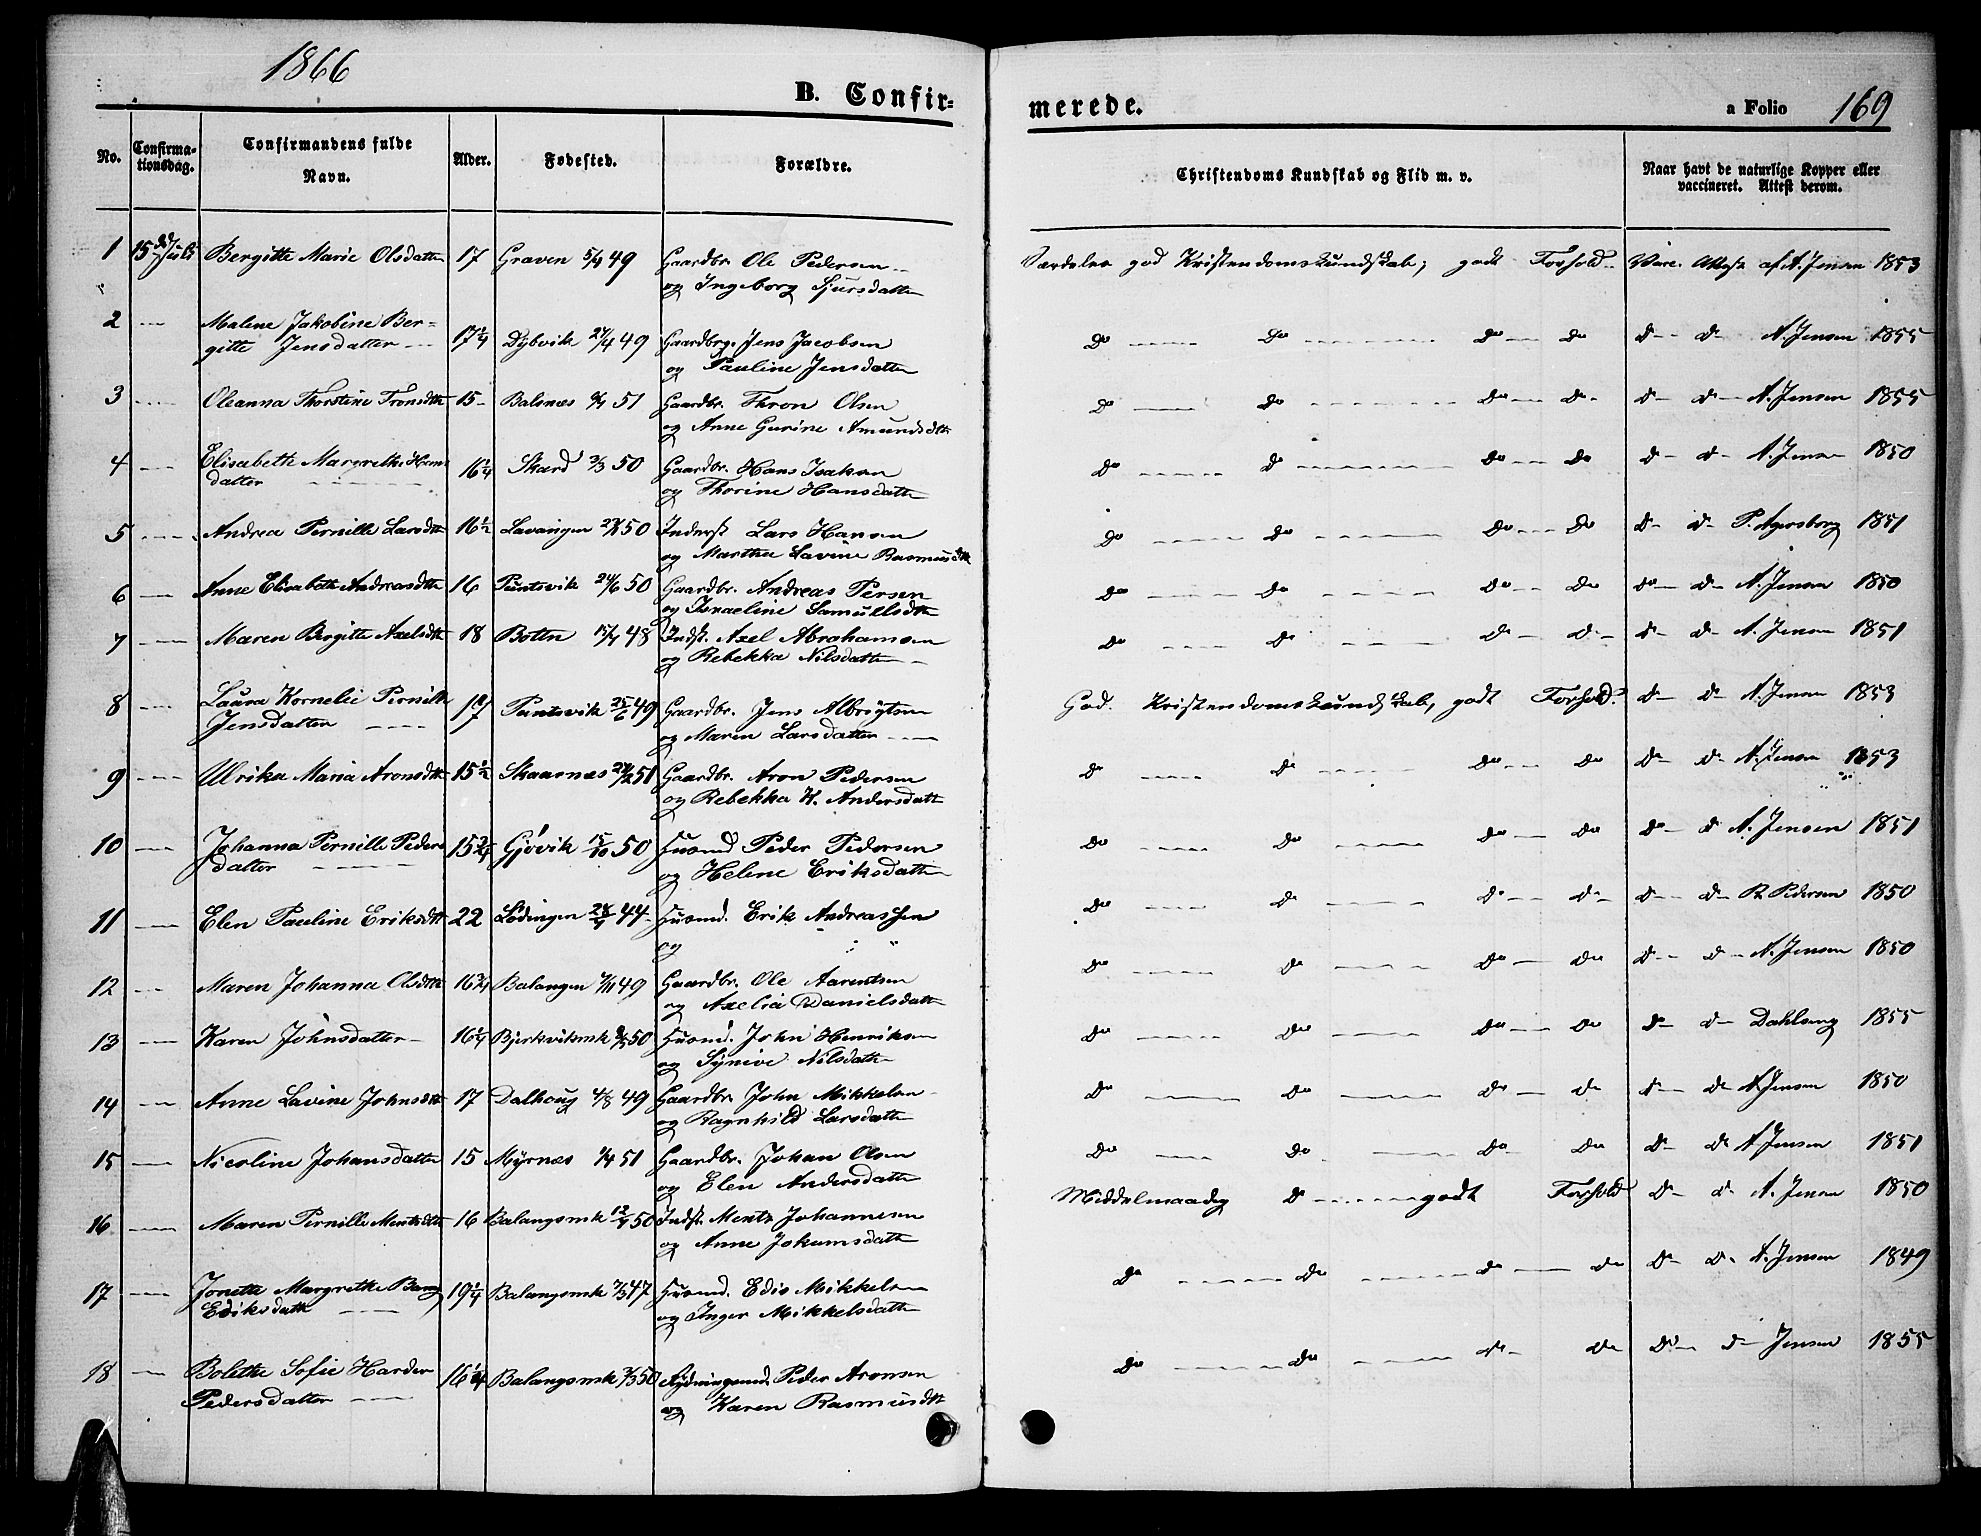 1866
B. Confir=
merede.
a Folio 169
No.
Confirma-
tionsdag.
Confirmandens fulde
Navn.
Alder.
Fødested.
Forældre.
Christendoms Kundskab og Flid m. v.
Naar havt de naturlige Kopper eller
vaccineret. Attest derom.
1 15de Juli Bergitte Marie Olsdatter 17 Graven 49 Gaardbr. Ole Pedersen
og Ingeborg Sjursdatter
Særdeles god Kristendomskundskab; godt Forhold. Vacc. Attest af A. Jensen 1853
2 Malene Jakobine Ber=
gitte Jensdatter 17 1/4 Dybvik 27/4 49 Gaardbrg. Jens Jacobsen
og Pauline Jensdatter
Do Do Do Do D D A. Jensen 1855
3 Oleanna Thorstine Tronsdtr 15 Balsnæs 51 Gaardbr. Thron Olsen
og Anne Gurine Amundsdtr
Do Do Do Do D D A. Jensen 1855
4 Elisabeth Margrethe Hans
datter 16 1/4 Skard 2/3 50 Gaardbr. Hans Isaksen
og Thorine Hansdatter
Do D Do Do D D A. Jensen 1850
5 Andrea Pernille Larsdtr 16 1/2 Lavangen 50 Inderst Lars Hansen
og Marthea Lavine Rasmusdtr
Do Do Do Do D D P. Agersborg 1851
6 Anne Elisabeth Andreasdtr 16 Puntsvik 24/6 50 Gaardbr. Andreas Persen
og Israeline Samuelsdtr
Do Do Do Do Do D A. Jensen 1850
7 Maren Bergitte Axelsdtr 18 Botten 48 Indst. Axel Abrahamsen
og Rebekka Nilsdatter
Do D D D D D A. Jensen 1851
8 Laura Kornelie Pernille
Jensdatter 17 Puntsvik 25/6 49 Gaardbr. Jens Albrigtsen
og Maren Larsdatter
God Kristendomskundskab, godt Forhold. D D A. Jensen 1853
9 Ulrika Maria Aronsdtr 15 1/2 Skaarnæs 51 Gaardbr. Aron Pedersen
og Rebekka K. Andersdatter
Do D Do Do D D A. Jensen 1853
10 Johanna Pernille Peders
datter 15 3/4 Gjøvik 15/10 50 Husmd Peder Pedersen
og Helene Eriksdatter
Do Do Do Do D D A. Jensen 1851
11 Elen Pauline Eriksdtr 22 Lødingen 44 Husmd. Erik Andreassen
og " "
Do D D D D D Pedersen 1850
12 Maren Johanna Olsdtr 16 3/4 Balangen 49 Gaardbr. Ole Aarentsen
og Axelia Danielsdatter
Do Do Do Do D D A. Jensen 1850
13 Karen Johnsdatter 16 1/4 Bjerkviksmk 50 Husmd. John Henriksen
og Synive Nilsdatter
Do Do Do Do D D Dahlseng 1855
14 Anne Lavine Johnsdtr 17 Dalhoug 4/8 49 Gaardbr. John Mikkelsen
og Ragnhild Larsdatter
Do Do Do Do D D A. Jensen 1850
15 Nicoline Johansdatter 15 Myrnæs 51 Gaardbr. Johan Olsen
og Elen Andersdatter
Do Do Do Do D D A. Jensen 1851
16 Maren Pernille Mentsdtr 16 Balangsmk 50 Indst. Mentz Johannesen
og Anne Jokumsdatter
Middelmaadig D godt Forhold D D A. Jensen 1850
17 Jonette Margrethe Berg
Ediksdatter 19 1/4 Balangsmk 47 Husmd. Edis Mikkelsen
og Inger Mikkelsdatter
Do Do Do Do D D A. Jensen 1849
18 Bolethe Sofie Harder
Pedersdatter 16 1/4 Balangsmk 50 Rydningsmd. Peder Aronsen
og Karen Rasmusdtr
Do Do Do Do Do D Jensen 1855